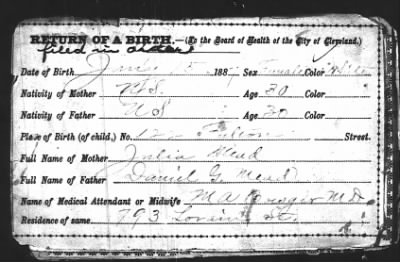 RETURN OF A BIRTH.—(To the Board of Health of the City of Cleveland.)
filed in order
Date of Birth June 15 188 Sex Female Color White
Nativity of Mother U.S. Age 30 Color
Nativity of Father U S Age 30 Color
Place of Birth (of child,) No. Street.
Full Name of Mother Julia Mead
Full Name of Father Daniel G. Mead
Name of Medical Attendant or Midwife M A M.D.
Residence of same 793 Lorain St.